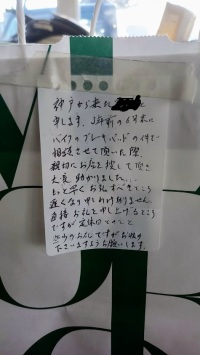 神戸から来た と
申します。3年前の6月末に
バイクのブレーキパッドの件で
相談させて頂いた際、
親切にお店を探して頂き
大変助かりました...
もっと早くお礼すべきところ
遅くなり申しわけありません。
直接お礼を申し上げるところ
ですが定休日とのこと
お
下さいますようお願いします。